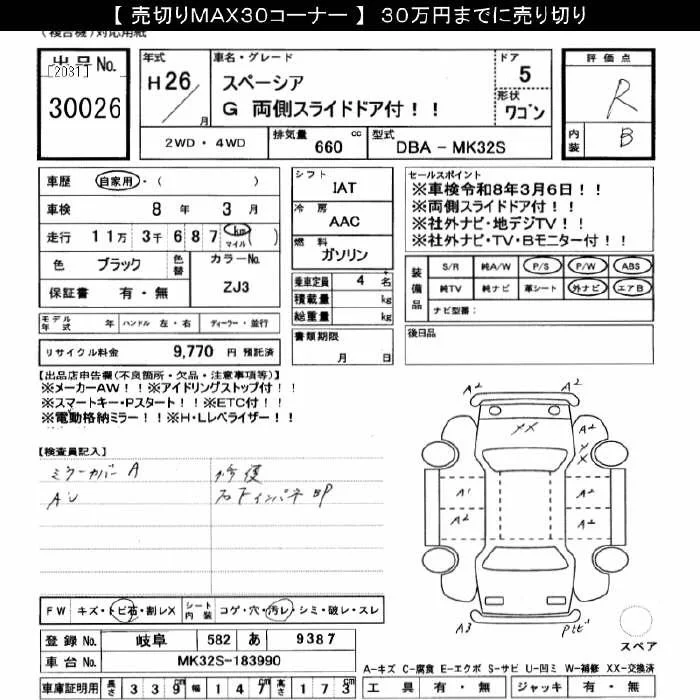 【 売切りMAX30コーナー 】 30万円までに売り切り
(複合機)対応用紙
出品No.
[2031]
30026
年式
H26/
月
車名・グレード
スペーシア
G 両側スライドドア付！！
ドア
5
形状
ワゴン
評価点
R
内装
B
2WD・4WD
排気量
660
cc
型式
DBA - MK32S
車歴
自家用・( )
車検
8 年 3 月
走行
11万 3千 687
km
マイル
( )
色
ブラック
色替
カラーNo.
ZJ3
保証書
有・無
モデル年式
年
ハンドル
左・右
ディーラー・並行
リサイクル料金
9,770 円 預託済
シフト
IAT
冷房
AAC
燃料
ガソリン
乗車定員
4 名
積載量
kg
総重量
kg
書類期限
月 日
セールスポイント
※車検令和8年3月6日！！
※両側スライドドア付！！
※社外ナビ・地デジTV！！
※社外ナビ・TV・Bモニター付！！
装備品
S/R 純A/W P/S P/W ABS
純TV 純ナビ 革シート 外ナビ エアB
ナビ型番：
後日品
【出品店申告欄(不良箇所・欠品・注意事項等)】
※メーカーAW！！※アイドリングストップ付！！
※スマートキー・Pスタート！！※ETC付！！
※電動格納ミラー！！※H・Lレベライザー！！
【検査員記入】
ミラーカバー A
AU
修復
右Fインパネ BP
A2
A2
XX
A2
A1
A2
A2
A2
A3
FW
キズ・トビ石・割レX
シート内装
コゲ・穴・汚レ・シミ・破レ・スレ
登録 No.
岐阜 582 あ 9387
車台 No.
MK32S-183990
車庫証明用
長さ
339cm
幅
147cm
高さ
173cm
スペア
A-キズ C-腐食 E-エクボ S-サビ U-凹ミ W-補修 XX-交換済
工具
有・無
ジャッキ
有・無